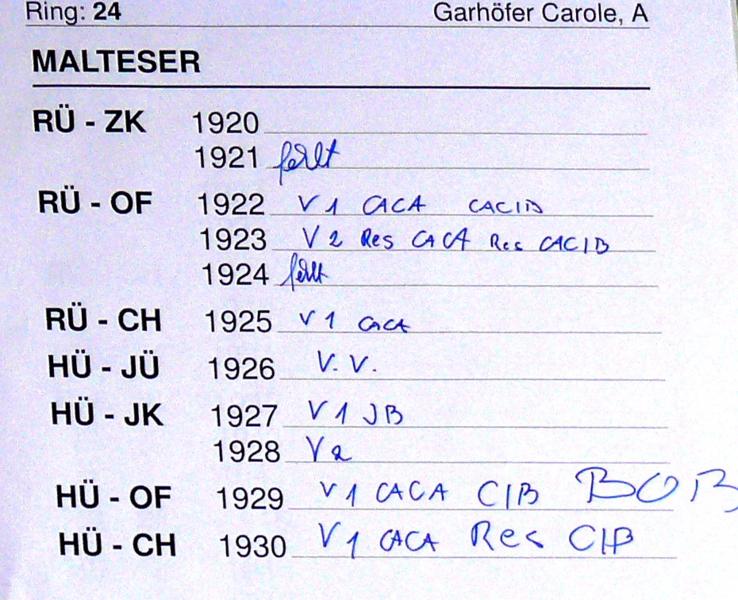 Ring: 24 Garhöfer Carole, A
MALTESER
RÜ - ZK 1920
1921 fehlt
RÜ - OF 1922 V1 CACA CACIB
1923 V2 Res CACA Res CACIB
1924 fehlt
RÜ - CH 1925 V1 CACA
HÜ - JÜ 1926 V.V.
HÜ - JK 1927 V1 JB
1928 V2
HÜ - OF 1929 V1 CACA CIB BOB
HÜ - CH 1930 V1 CACA Res CIB